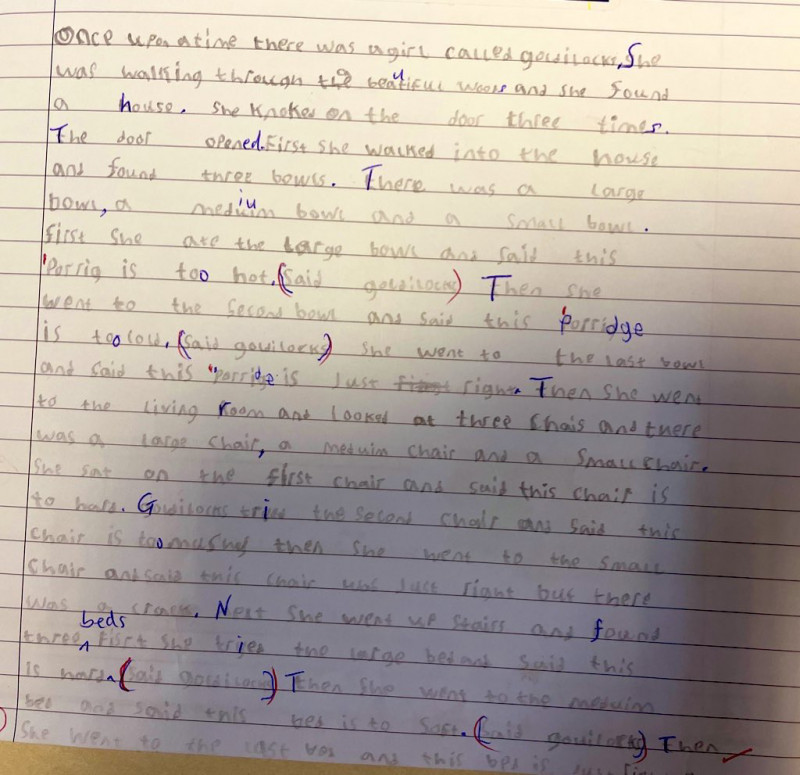 Once upon a time there was a girl called goldilocks, She
was walking through the beautiful woods and she found
a house. She knoked on the door three times.
The door opened. First she walked into the house
and found three bowls. There was a large
bowl, a meduium bowl and a small bowl.
first she ate the large bowl and said this
"Porrig is too hot. (Said goldilocks) Then she
went to the second bowl and said this "Porridge
is too cold. (said goldilocks) she went to the last bowl
and said this "Porridge is Just right. Then she went
to the living room and looked at three Chais and there
was a large chair, a meduim chair and a small chair.
She sat on the first chair and said this chair is
to hard. Goldilocks tried the second chair and said this
chair is too mushed then she went to the small
chair and said this chair was Just right but there
was a crack. Next she went up stairs and found
three beds Fisrt she tried the large bed and said this
is hard. (said goldilocks) Then she went to the meduim
bed and said this bed is to soft. (said goldilocks) Then
She went to the last bed and this bed is Just